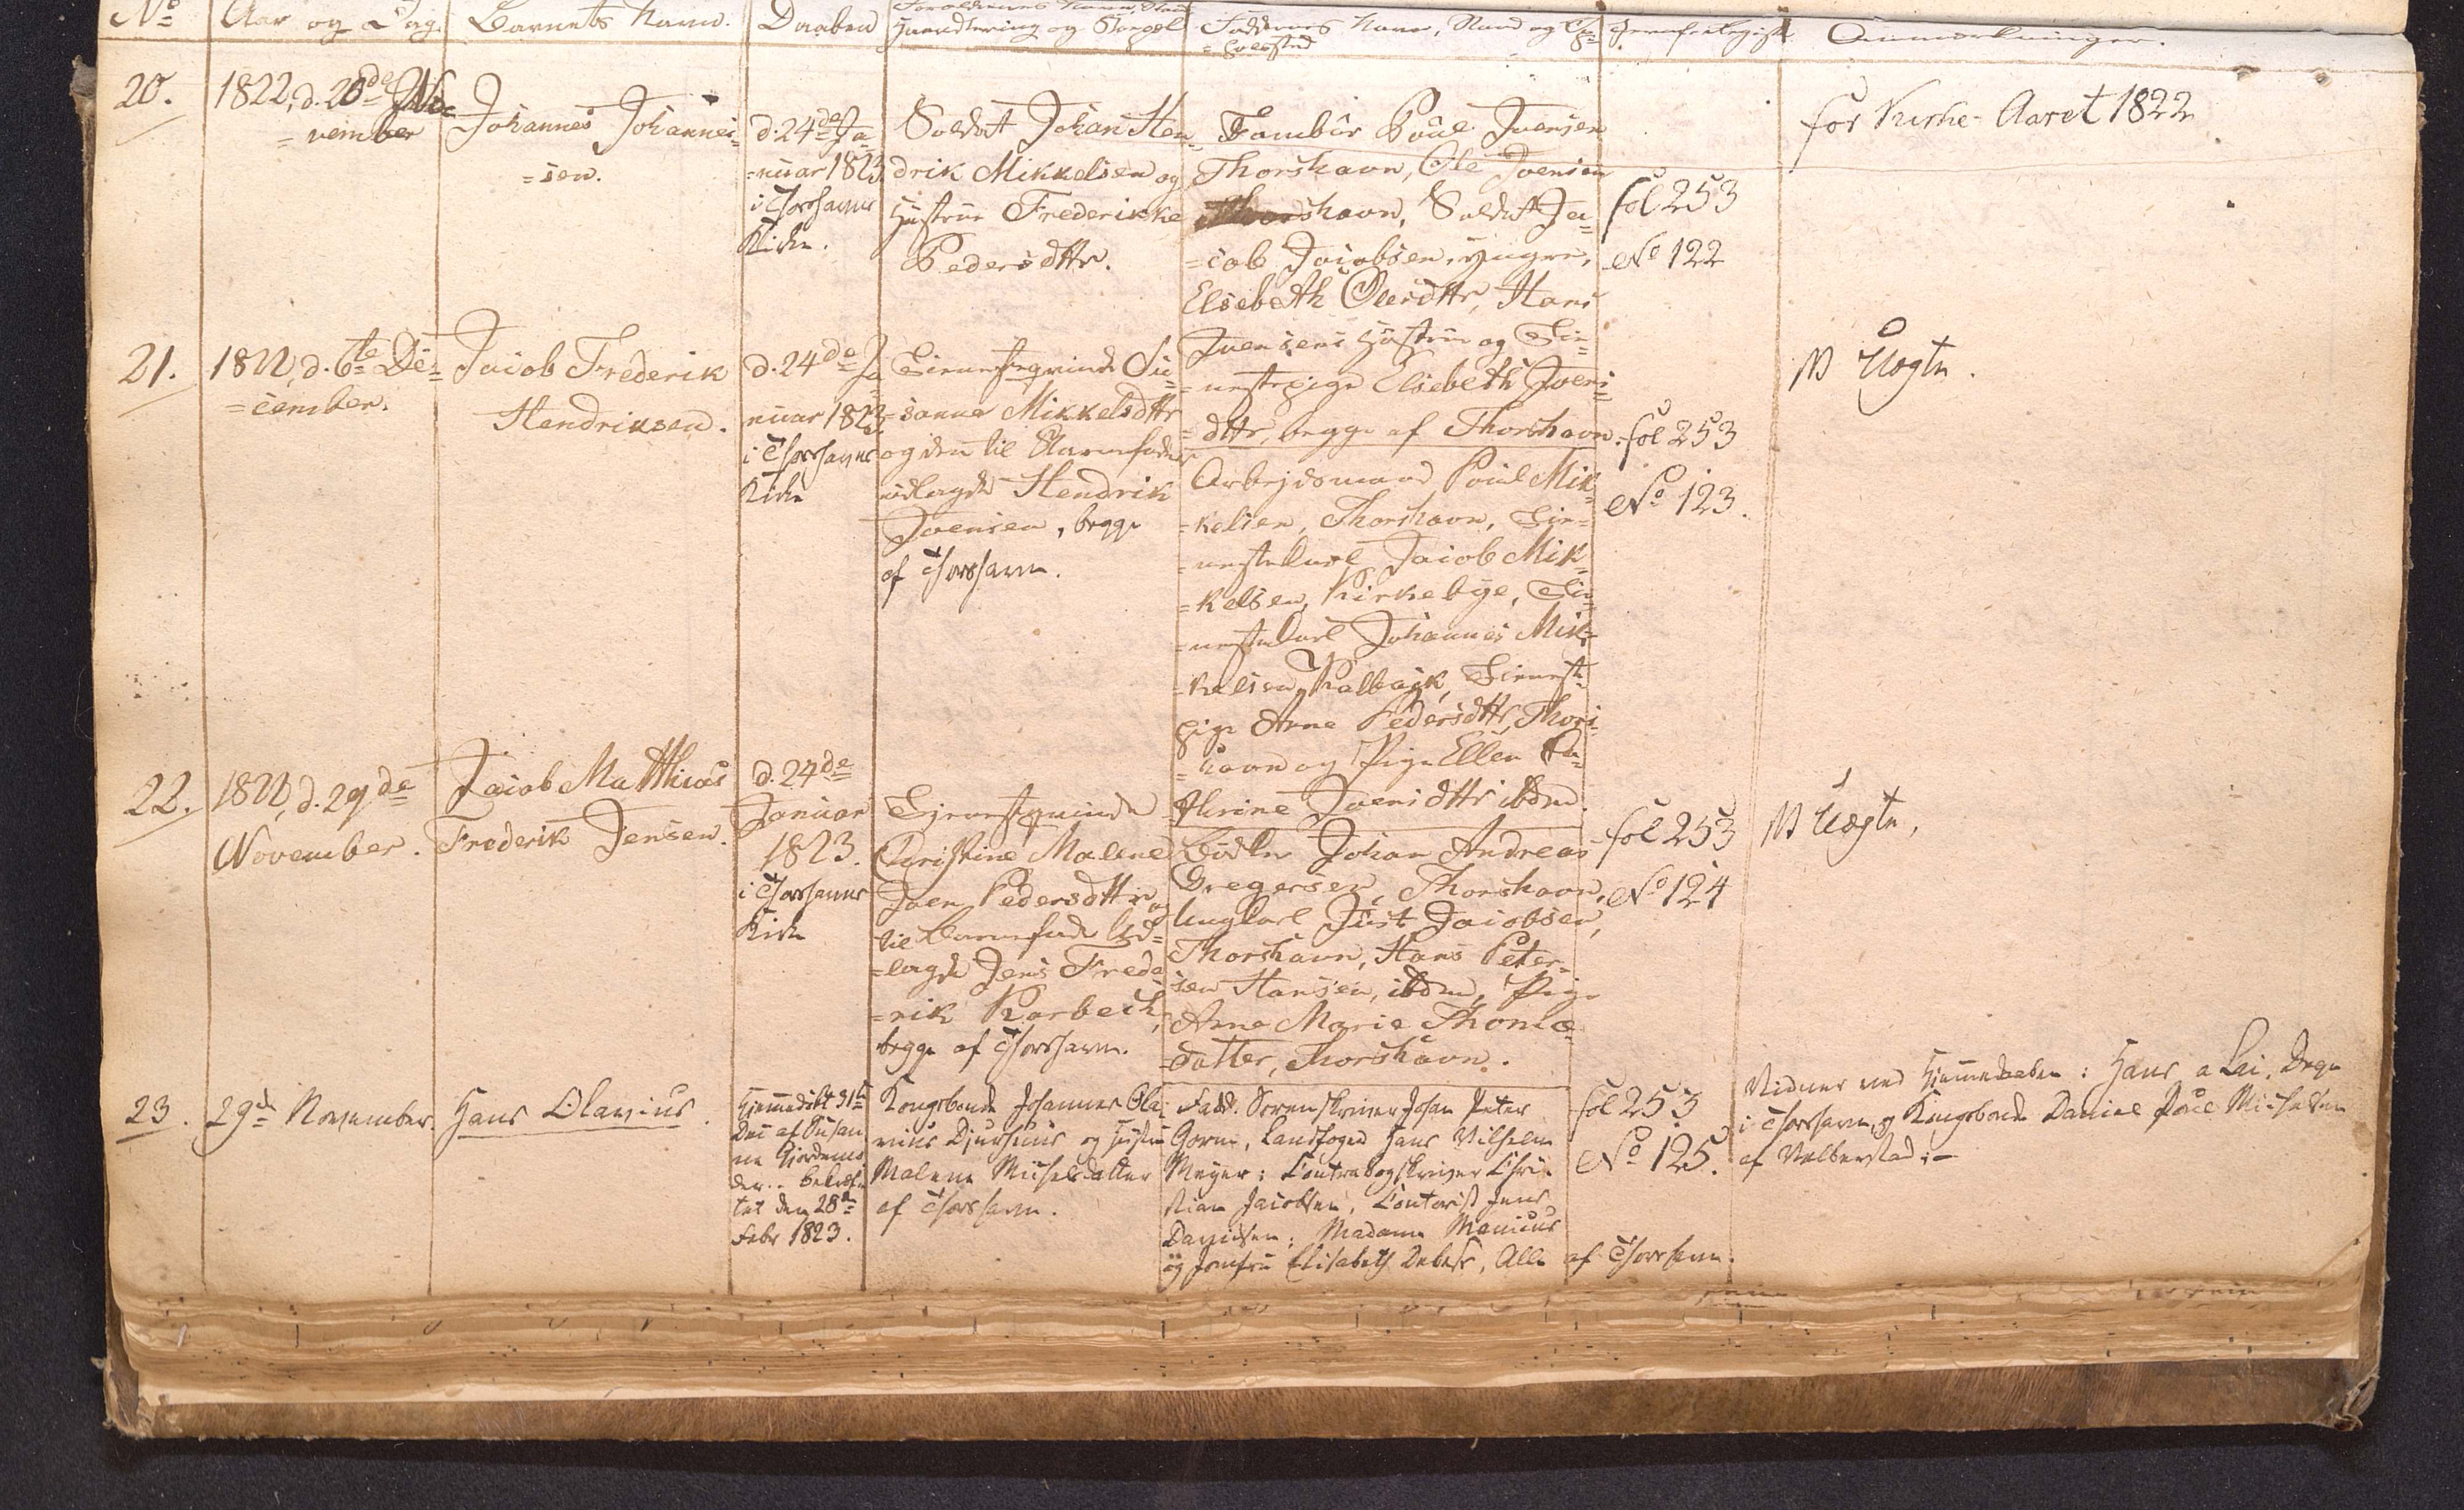 No
Aar og Dag.
Barnets Navn.
Daaben
Haandtering og Bopæl
Faddernes Navn, Stand og Op-
=holdssted
Jevnf. Regist.
Anmærkninger.
20.
1822, d. 20de No-
=vember
Johannes Johannes=
=sen.
d. 24de Ja
=nuar 1823
i Thorshavns
Kirke.
Soldat Johan Hen=
drik Mikkelsen og
Hustrue Frederikke
Pedersdttr.
Tambur Poul Joensen
Thorshavn, Ole Joensen
Thorshavn, Soldat Ja=
=cob Jacobsen, yngre,
Elsebeth Olesdttr, Hans
Joensens Hustrue og Tie=
=nestepige Elsebeth Joens
=dttr, begge af Thorshavn.
fol 253
No 122
for Kirke-Aaret 1822
21.
1822, d. 6te De=
=cember.
Jacob Frederik
Hendriksen.
d. 24de Ja
nuar 1823
i Thorshavns
Kirke
Tienesteqvinde Su=
=sanna Mikkelsdttr
og den til Barnefader
udlagde Hendrik
Joensen, begge
af Thorshavn.
Arbejdsmand Poul Mik
=kelsen, Thorshavn, Tie=
=nestekarl Jacob Mik=
=kelsen, Kirkebye, Tie=
=nestekarl Johannes Mik=
=kelsen, Kalbak, Tieneste
pige Anne Pedersdttr, Thors=
=havn og Pige Ellen Ca=
thrine Joensdttr ibdm.
fol 253
No 123.
NB Uægte.
22.
1822, d. 29de
November.
Jacob Matthias
Frederik Jensen.
d. 24de
Januar
1823.
i Thorshavns
Kirke
Tjenesteqvinde
Christine Malene
Joen Pedersdttr og
til Barnefader Ud=
=lagde Jens Frede
=rik Korbech,
begge af Thorshavn.
Bødker Johan Andreas
Gregersen, Thorshavn,
Ungkarl Just Jacobsen,
Thorshavn, Hans Peter=
sen Hansen, ibdm, Pige
Anne Marie Thomæ
=datter, Thorshavn.
fol 253
No 124
NB Uægte.
23.
29d November
Hans Olavius.
Hjemmedøbt 31te
Dec af Susan
ne Gjordemo
der.. bekræf=
tet den 28de
Febr 1823.
Kongsbonde Johannes Ola
vius Djurhuus og Hustru
Malene Michelsdatter
af Thorshavn.
Fadd. Sorenskriver Johan Peter
Gorm, Landfoged Hans Vilhelm
Meyer: Contrabogskriver Chri=
stian Jacobsen, Contorist Jens
Davidsen: Madame Manicus
og Jomfru Elisabeth Debess, Alle af Thorshavn.
fol 253
No 125.
Vidner ved Hjemmedaaben: Hans a Lai, Degn
i Thorshavn, og Kongsbonde Daniel Poul Michelsen
af Velberstad:-